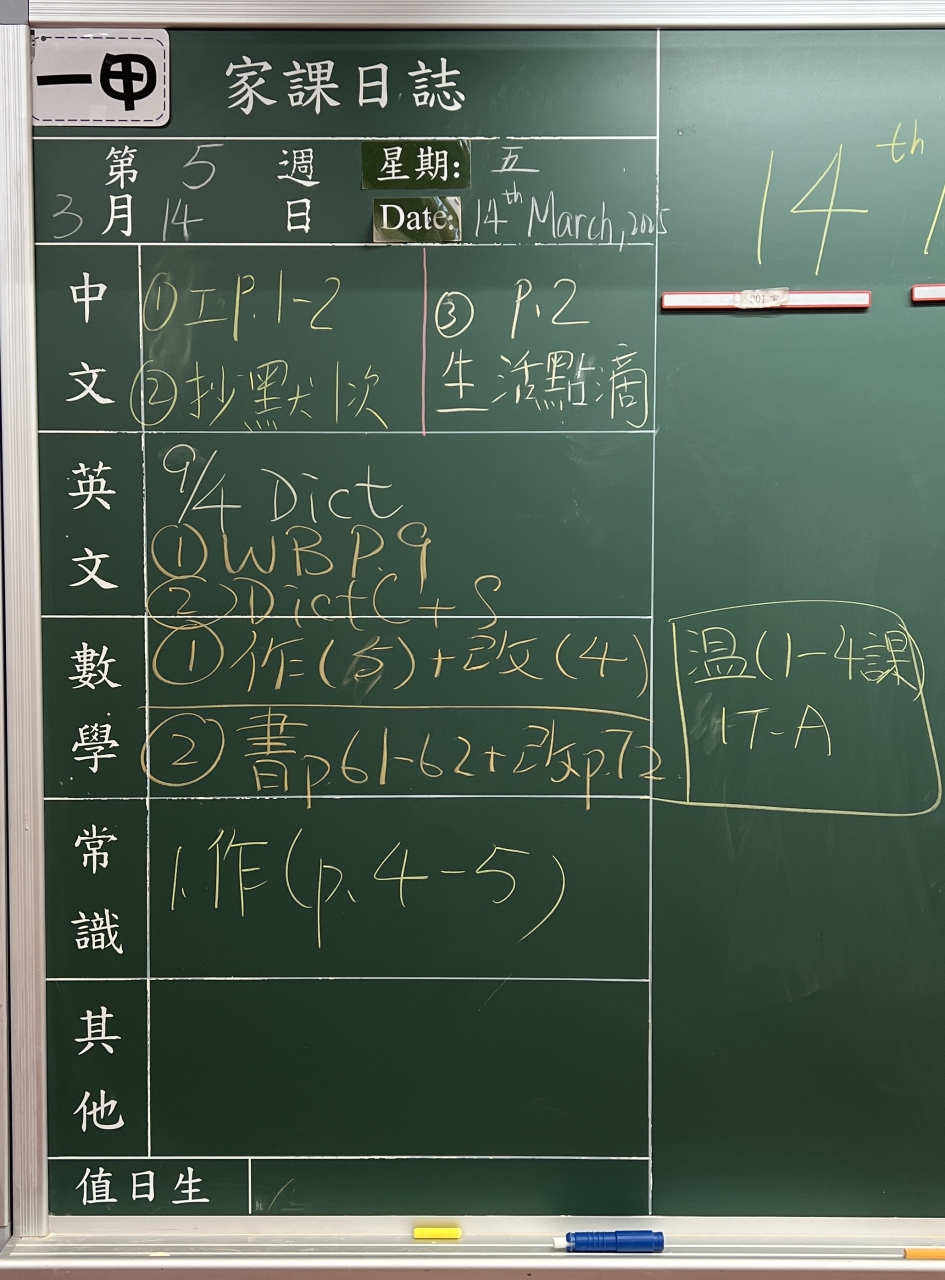 一甲
家課日誌
第 5 週 星期: 五
3 月 14 日 Date: 14th March, 2025
14th
中文
① 工 P.1-2
② 抄默 1次
③ P.2
生活點滴
英文
9/4 Dict
① WB P.9
② Dict C + S
數學
① 作(5)+改(4)
② 書p.61-62+改p.72
溫(1-4課)
HT-A
常識
1.作(p.4-5)
其他
值日生